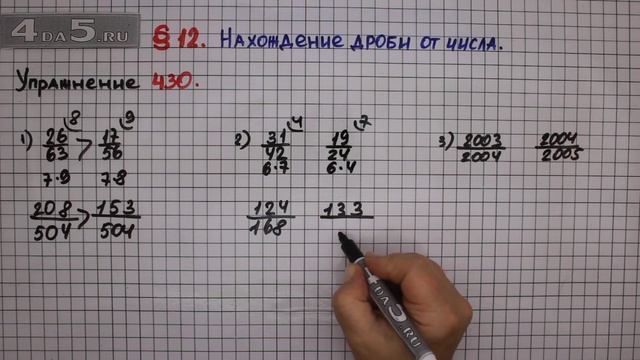 4DA5.RU
§ 12. Нахождение дроби от числа.
Упражнение 430.
1) 26/63 > 17/56
8 9
7·9 7·8
208/504 > 153/504
2) 31/42 19/24
4 7
6·7 6·4
124/168 133
3) 2003/2004 2004/2005